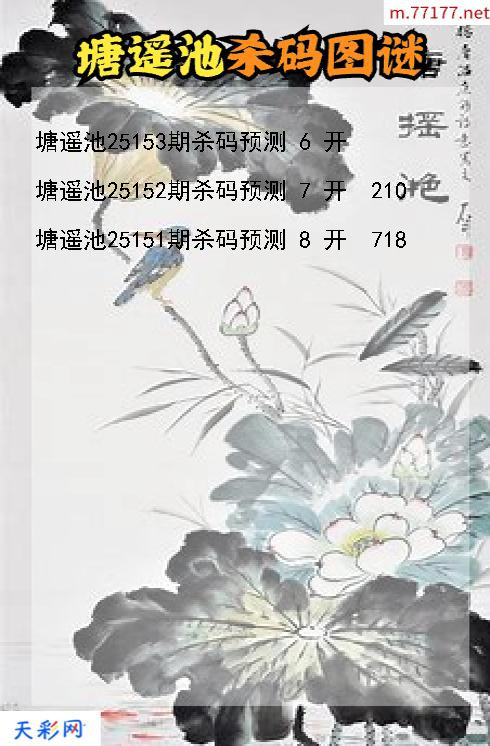 m.77177.net
塘遥池杀码图谜
塘遥池25153期杀码预测 6 开
塘遥池25152期杀码预测 7 开 210
塘遥池25151期杀码预测 8 开 718
摇
滟
天彩网